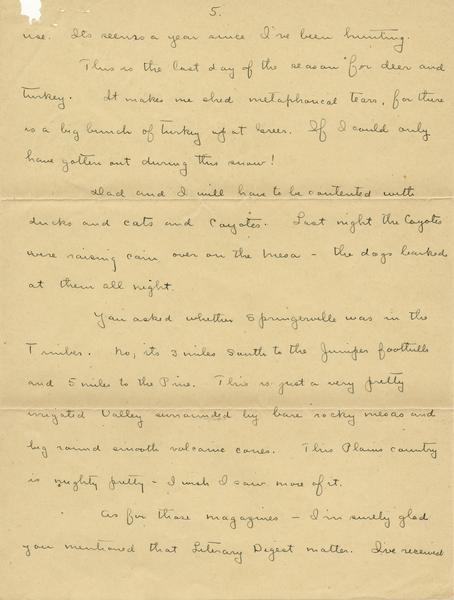 5.
use. Its seems a year since I've been hunting.
This is the last day of the season for deer and
turkey. It makes me shed metaphorical tears, for there
is a big bunch of turkey up at Greer. If I could only
have gotten out during this snow!
Dad and I will have to be contented with
ducks and cats and Coyotes. Last night the Coyotes
were raising cain over on the mesa - the dogs barked
at them all night.
You asked whether Springerville was in the
Timber. No, its 3 miles South to the Juniper foothills
and 5 miles to the Pine. This is just a very pretty
irrigated Valley surrounded by bare rocky mesas and
big round smooth volcanic cones. This Plains country
is mighty pretty - I wish I saw more of it.
As for those magazines - I'm surely glad
you mentioned that Literary Digest matter. I've received